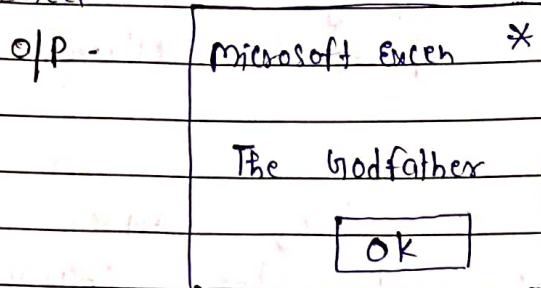 O/P - Microsoft Excen X
The Godfather
OK